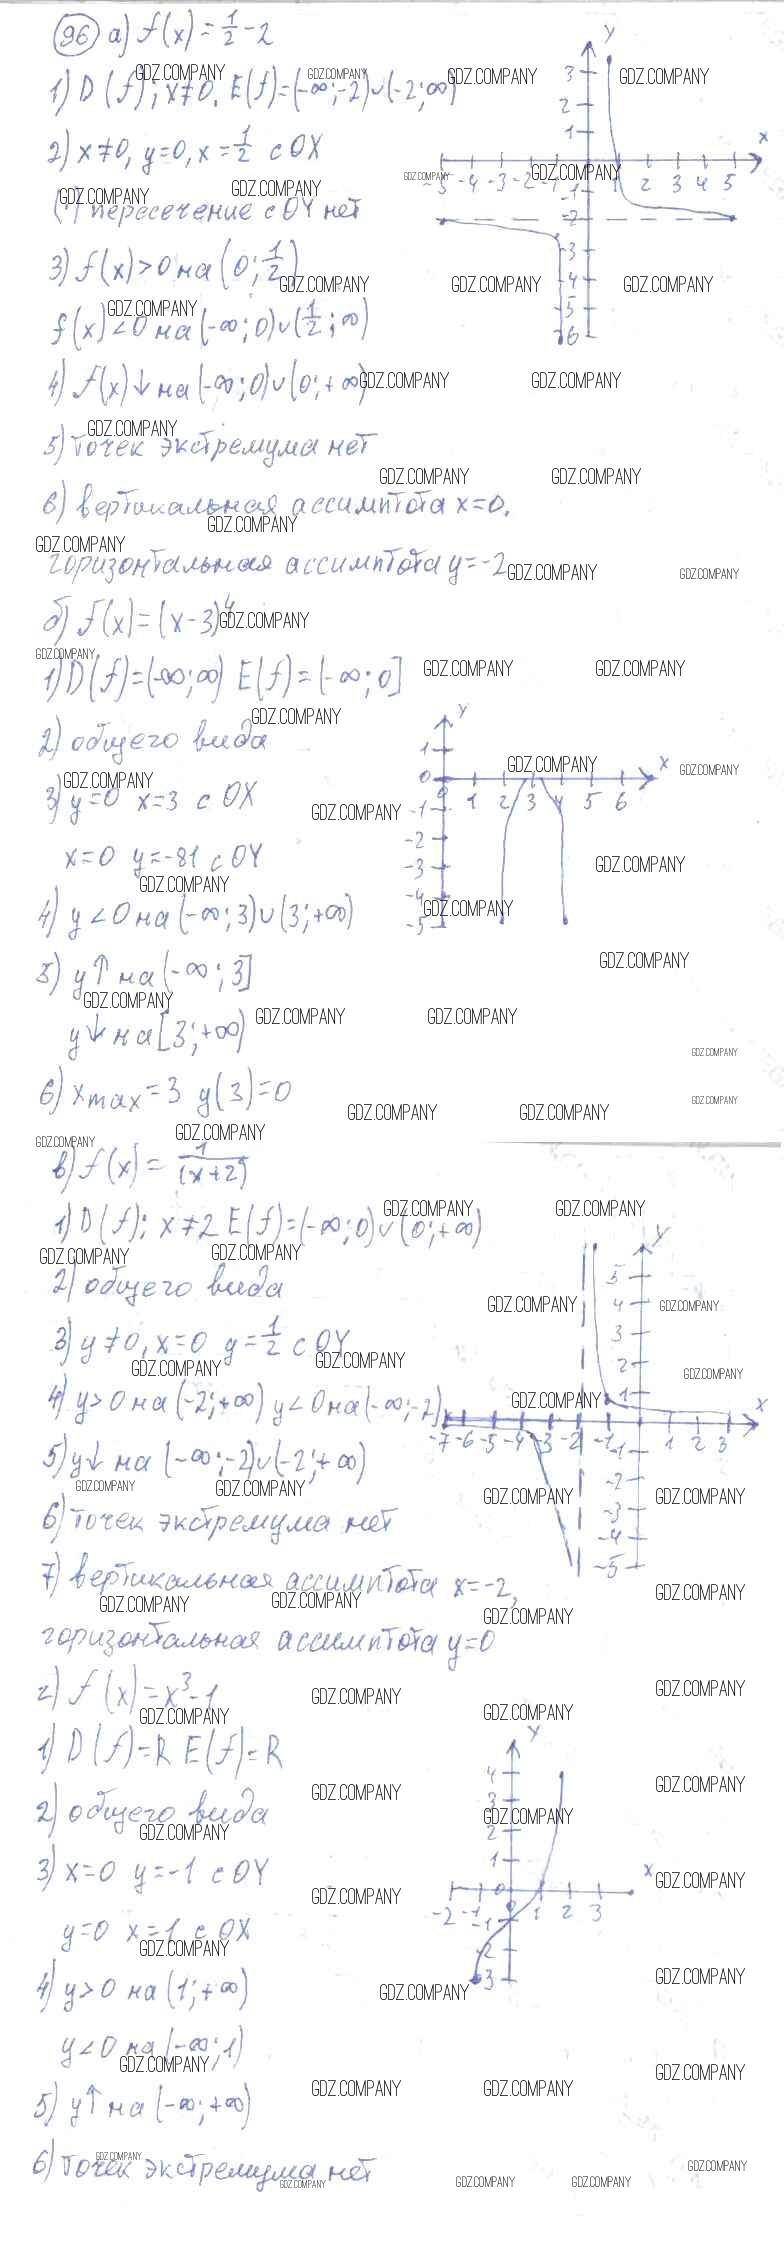 96 а) f(x) = 1/2 - 2
1) D(f); x≠0. E(f)=(-∞;-2)∪(-2;∞)
2) x≠0, y=0, x=1/2 с OX
(·) пересечение с OY нет
3) f(x)>0 на (0; 1/2)
f(x)<0 на (-∞;0)∪(1/2;∞)
4) f(x)↓ на (-∞;0)∪(0;+∞)
5) точек экстремума нет
6) вертикальная ассимптота x=0,
горизонтальная ассимптота y=-2
б) f(x)=(x-3)⁴
1) D(f)=(-∞;∞) E(f)=(-∞;0]
2) общего вида
3) y=0 x=3 с OX
x=0 y=-81 с OY
4) y<0 на (-∞;3)∪(3;+∞)
5) y↑ на (-∞;3]
y↓ на [3;+∞)
6) xmax=3 y(3)=0
в) f(x) = 1/(x+2)
1) D(f); x≠2 E(f)=(-∞;0)∪(0;+∞)
2) общего вида
3) y≠0, x=0 y=1/2 с OY
4) y>0 на (-2;+∞) y<0 на (-∞;-2)
5) y↓ на (-∞;-2)∪(-2;+∞)
6) точек экстремума нет
7) вертикальная ассимптота x=-2,
горизонтальная ассимптота y=0
г) f(x)=x³-1
1) D(f)=R E(f)=R
2) общего вида
3) x=0 y=-1 с OY
y=0 x=1 с OX
4) y>0 на (1;+∞)
y<0 на (-∞;1)
5) y↑ на (-∞;+∞)
6) точек экстремума нет
GDZ.COMPANY